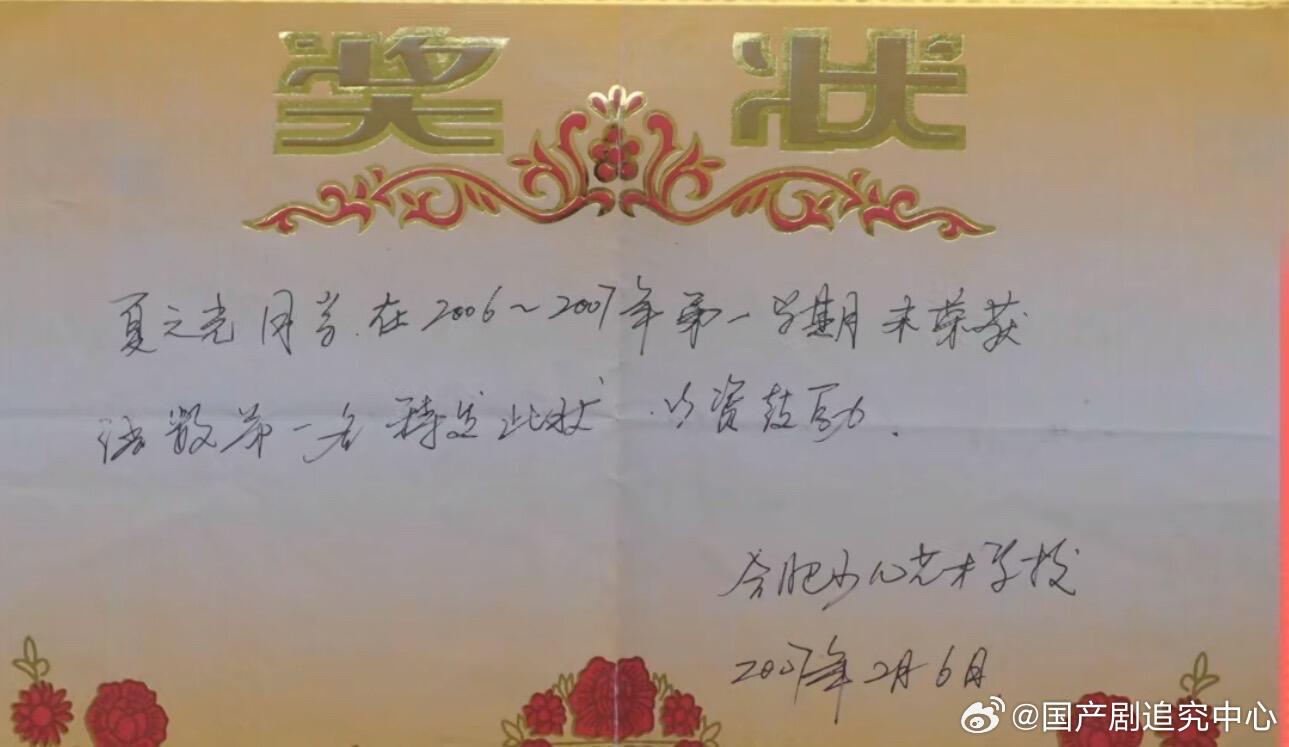 奖 状
夏之光同学.在2006~2007年第一学期末荣获
数第一名 特发此状.以资鼓励.
合肥少儿艺术学校
2007年2月6日
@国产剧追究中心